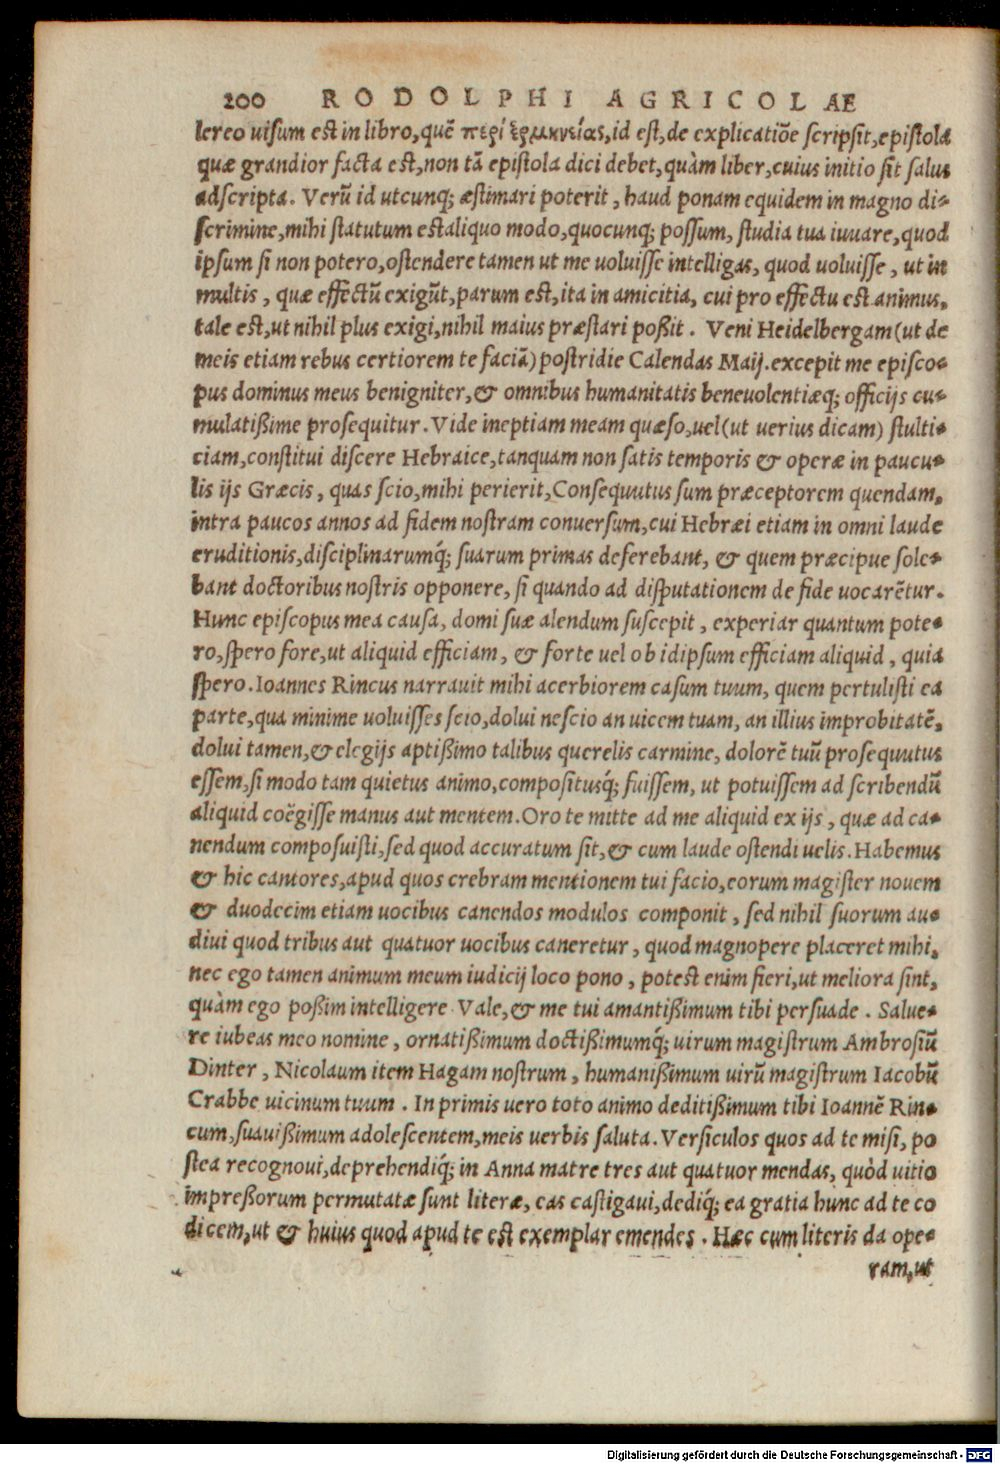 200 RODOLPHI AGRICOLAE
lereo uisum est in libro,quē περί ἑρμηνείας,id est,de explicatiōe scripsit,epistola
quæ grandior facta est,non tā epistola dici debet,quàm liber,cuius initio sit salus
adscripta. Verū id utcunq; æstimari poterit, haud ponam equidem in magno di-
scrimine,mihi statutum est aliquo modo,quocunq; possum, studia tua iuuare,quod
ipsum si non potero,ostendere tamen ut me uoluisse intelligas, quod uoluisse, ut in
multis, quæ effectū exigūt,parum est,ita in amicitia, cui pro effectu est animus,
tale est,ut nihil plus exigi,nihil maius præstari poßit. Veni Heidelbergam(ut de
meis etiam rebus certiorem te faciā) postridie Calendas Maij.excepit me episco-
pus dominus meus benigniter,& omnibus humanitatis beneuolentiæq; officijs cu-
mulatißime prosequitur. Vide ineptiam meam quæso,uel(ut uerius dicam) stulti-
ciam,constitui discere Hebraice,tanquam non satis temporis & operæ in paucu-
lis ijs Græcis, quas scio,mihi perierit,Consequutus sum præceptorem quendam,
intra paucos annos ad fidem nostram conuersum,cui Hebræi etiam in omni laude
eruditionis,disciplinarumq́; suarum primas deferebant, & quem præcipue sole-
bant doctoribus nostris opponere, si quando ad disputationem de fide uocarētur.
Hunc episcopus mea causa, domi suæ alendum suscepit, experiar quantum pote-
ro,spero fore,ut aliquid efficiam, & forte uel ob idipsum efficiam aliquid, quia
spero.Ioannes Rincus narrauit mihi acerbiorem casum tuum, quem pertulisti ea
parte,qua minime uoluisses scio,dolui nescio an uicem tuam, an illius improbitatē,
dolui tamen,& elegijs aptißimo talibus querelis carmine, dolorē tuū prosequutus
essem,si modo tam quietus animo,compositusq́; fuissem, ut potuissem ad scribendū
aliquid coëgisse manus aut mentem.Oro te mitte ad me aliquid ex ijs, quæ ad ca-
nendum composuisti,sed quod accuratum sit,& cum laude ostendi uelis.Habemus
& hic cantores,apud quos crebram mentionem tui facio,eorum magister nouem
& duodecim etiam uocibus canendos modulos componit, sed nihil suorum au-
diui quod tribus aut quatuor uocibus caneretur, quod magnopere placeret mihi,
nec ego tamen animum meum iudicij loco pono, potest enim fieri,ut meliora sint,
quàm ego poßim intelligere Vale,& me tui amantißimum tibi persuade. Salue-
re iubeas meo nomine, ornatißimum doctißimumq́; uirum magistrum Ambrosiū
Dinter, Nicolaum item Hagam nostrum, humanißimum uirū magistrum Iacobū
Crabbe uicinum tuum. In primis uero toto animo deditißimum tibi Ioannē Rin-
cum,suauißimum adolescentem,meis uerbis saluta.Versiculos quos ad te misi, po
stea recognoui,deprehendiq́; in Anna matre tres aut quatuor mendas, quòd uitio
impreßorum permutatæ sunt literæ, eas castigaui,dediq́; ea gratia hunc ad te co
dicem,ut & huius quod apud te est exemplar emendes. Hæc cum literis da ope-
ram,ut
Digitalisierung gefördert durch die Deutsche Forschungsgemeinschaft - DFG